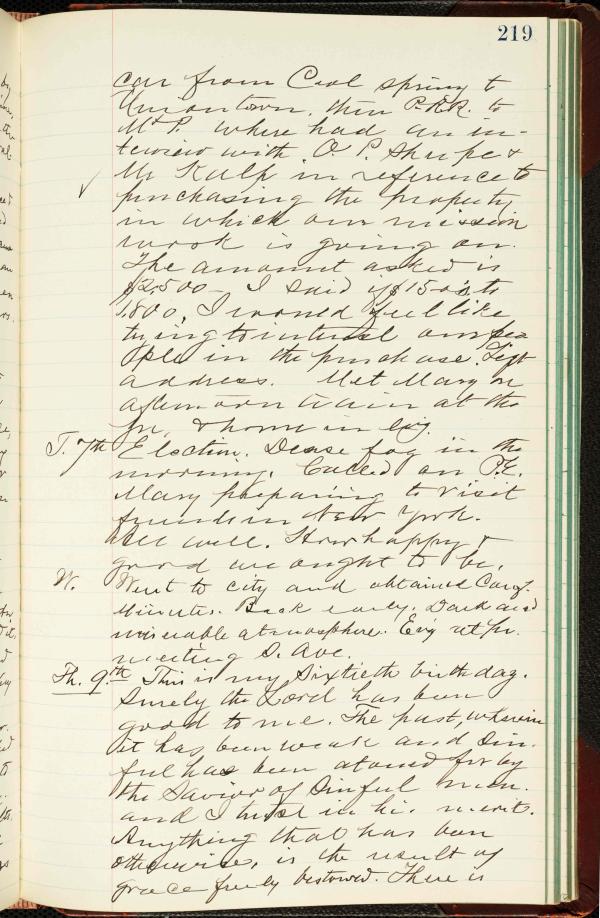 219
car from Cool spring to
Uniontown, then P.R.R. to
Mt P. where had an in-
terview with O. P. Shupe &
Mr Kulp in reference to
purchasing the property
in which our mission
work is going on.
The amount asked is
$2,500- I said if $15-00 to
1,800, I would feel like
trying to interest our peo
ople in the purchase. Left
address. Met Mary on
afternoon train at the
Jn, & home in Evg.
T. 7th Election. Dense fog in the
morning. Called on P.E.
Mary preparing to visit
friends in New York.
All well. How happy &
good we ought to be.
W. Went to city and obtained Conf.
Minutes. Back early. Dark and
miserable atmosphere. Evg at pr.
meeting S. Ave.
Th. 9th. This is my Sixtieth birthday.
Surely the Lord has been
good to me. The past, wherein
it has been weak and sin-
ful has been atoned for by
the Savior of Sinful men.
and I trust in his merit.
Anything that has been
otherwise, is the result of
grace freely bestowed. There is